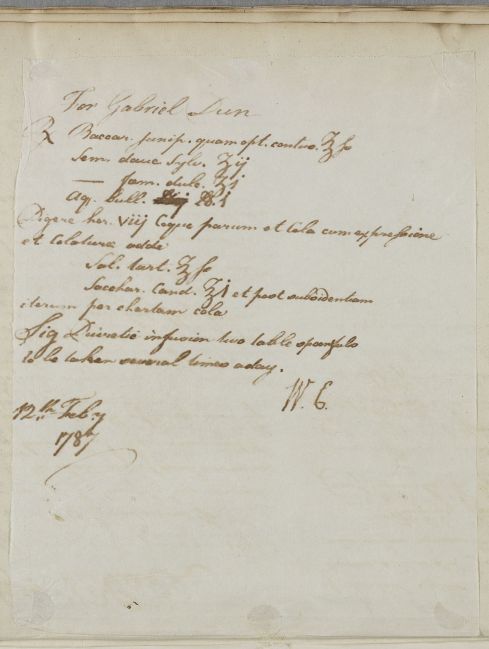 For Gabriel Dun
℞ Baccar. junip. quam opt. contus. ℥ ſs
Sem. dauci Sylv. ʒij
— fœn. dulc. ʒj
Aq. bull. ℔.j
Digere hor. viij Coque parum et Cola cum expressione
et Colaturæ adde
Sal. tart. ʒ ſs
Sacchar. Cand. ʒj et post subsidentiam
iterum per chartam cola
Sig Diuretic infusion two table spoonfuls
to be taken several times a day.
W. C.
12th. Feb:y
1787